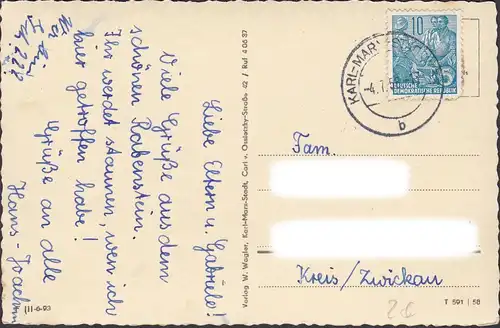 Liebe Eltern u. Gabriele!
Viele Grüße aus dem
schönen Rabenstein.
Ihr werdet staunen, wen ich
hier getroffen habe!
Grüße an alle
Hans-Joachim
Verlag W. Wagler, Karl-Marx-Stadt, Carl v. Ossietzky-Straße 42 / Ruf 4 06 87
KARL-MARX-
-4.7.5
b
10
DEUTSCHE
DEMOKRATISCHE REPUBLIK
Fam.
Kreis/Zwickau
III-6-93
T 591 58